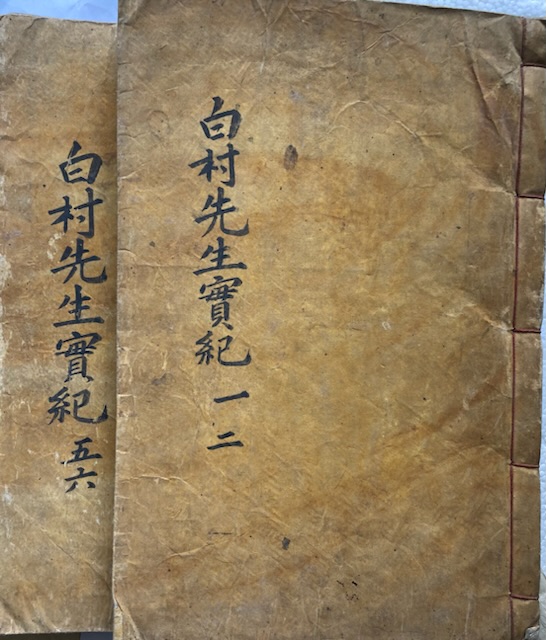 白村先生實紀 一二
白村先生實紀 五六